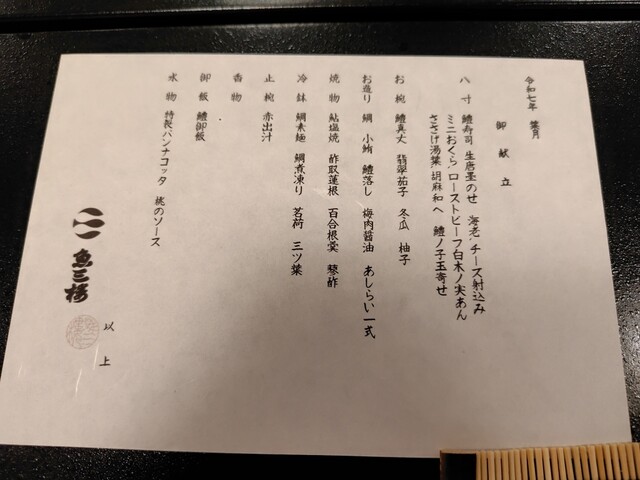 令和七年 葉月
御献立
八寸 鱧寿司 生唐墨のせ 海老チーズ射込み
ミニおくら ローストビーフ白木ノ実あん
ささげ湯葉 胡麻和へ 鱧ノ子玉寄せ
お椀 鱧真丈 翡翠茄子 冬瓜 柚子
お造り 鯛 小鮪 鱧落し 梅肉醤油 あしらい一式
焼物 鮎塩焼 酢取蓮根 百合根羹 蓼酢
冷鉢 鯛素麺 鯛煮凍り 茗荷 三ツ葉
止椀 赤出汁
香物
御飯 鱧御飯
水物 特製パンナコッタ 桃のソース
魚三楼
以上